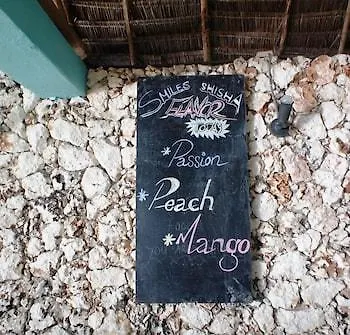 SMILES SHISHA
FLAVOR
TODAY
*Passion
*Peach
*Mango